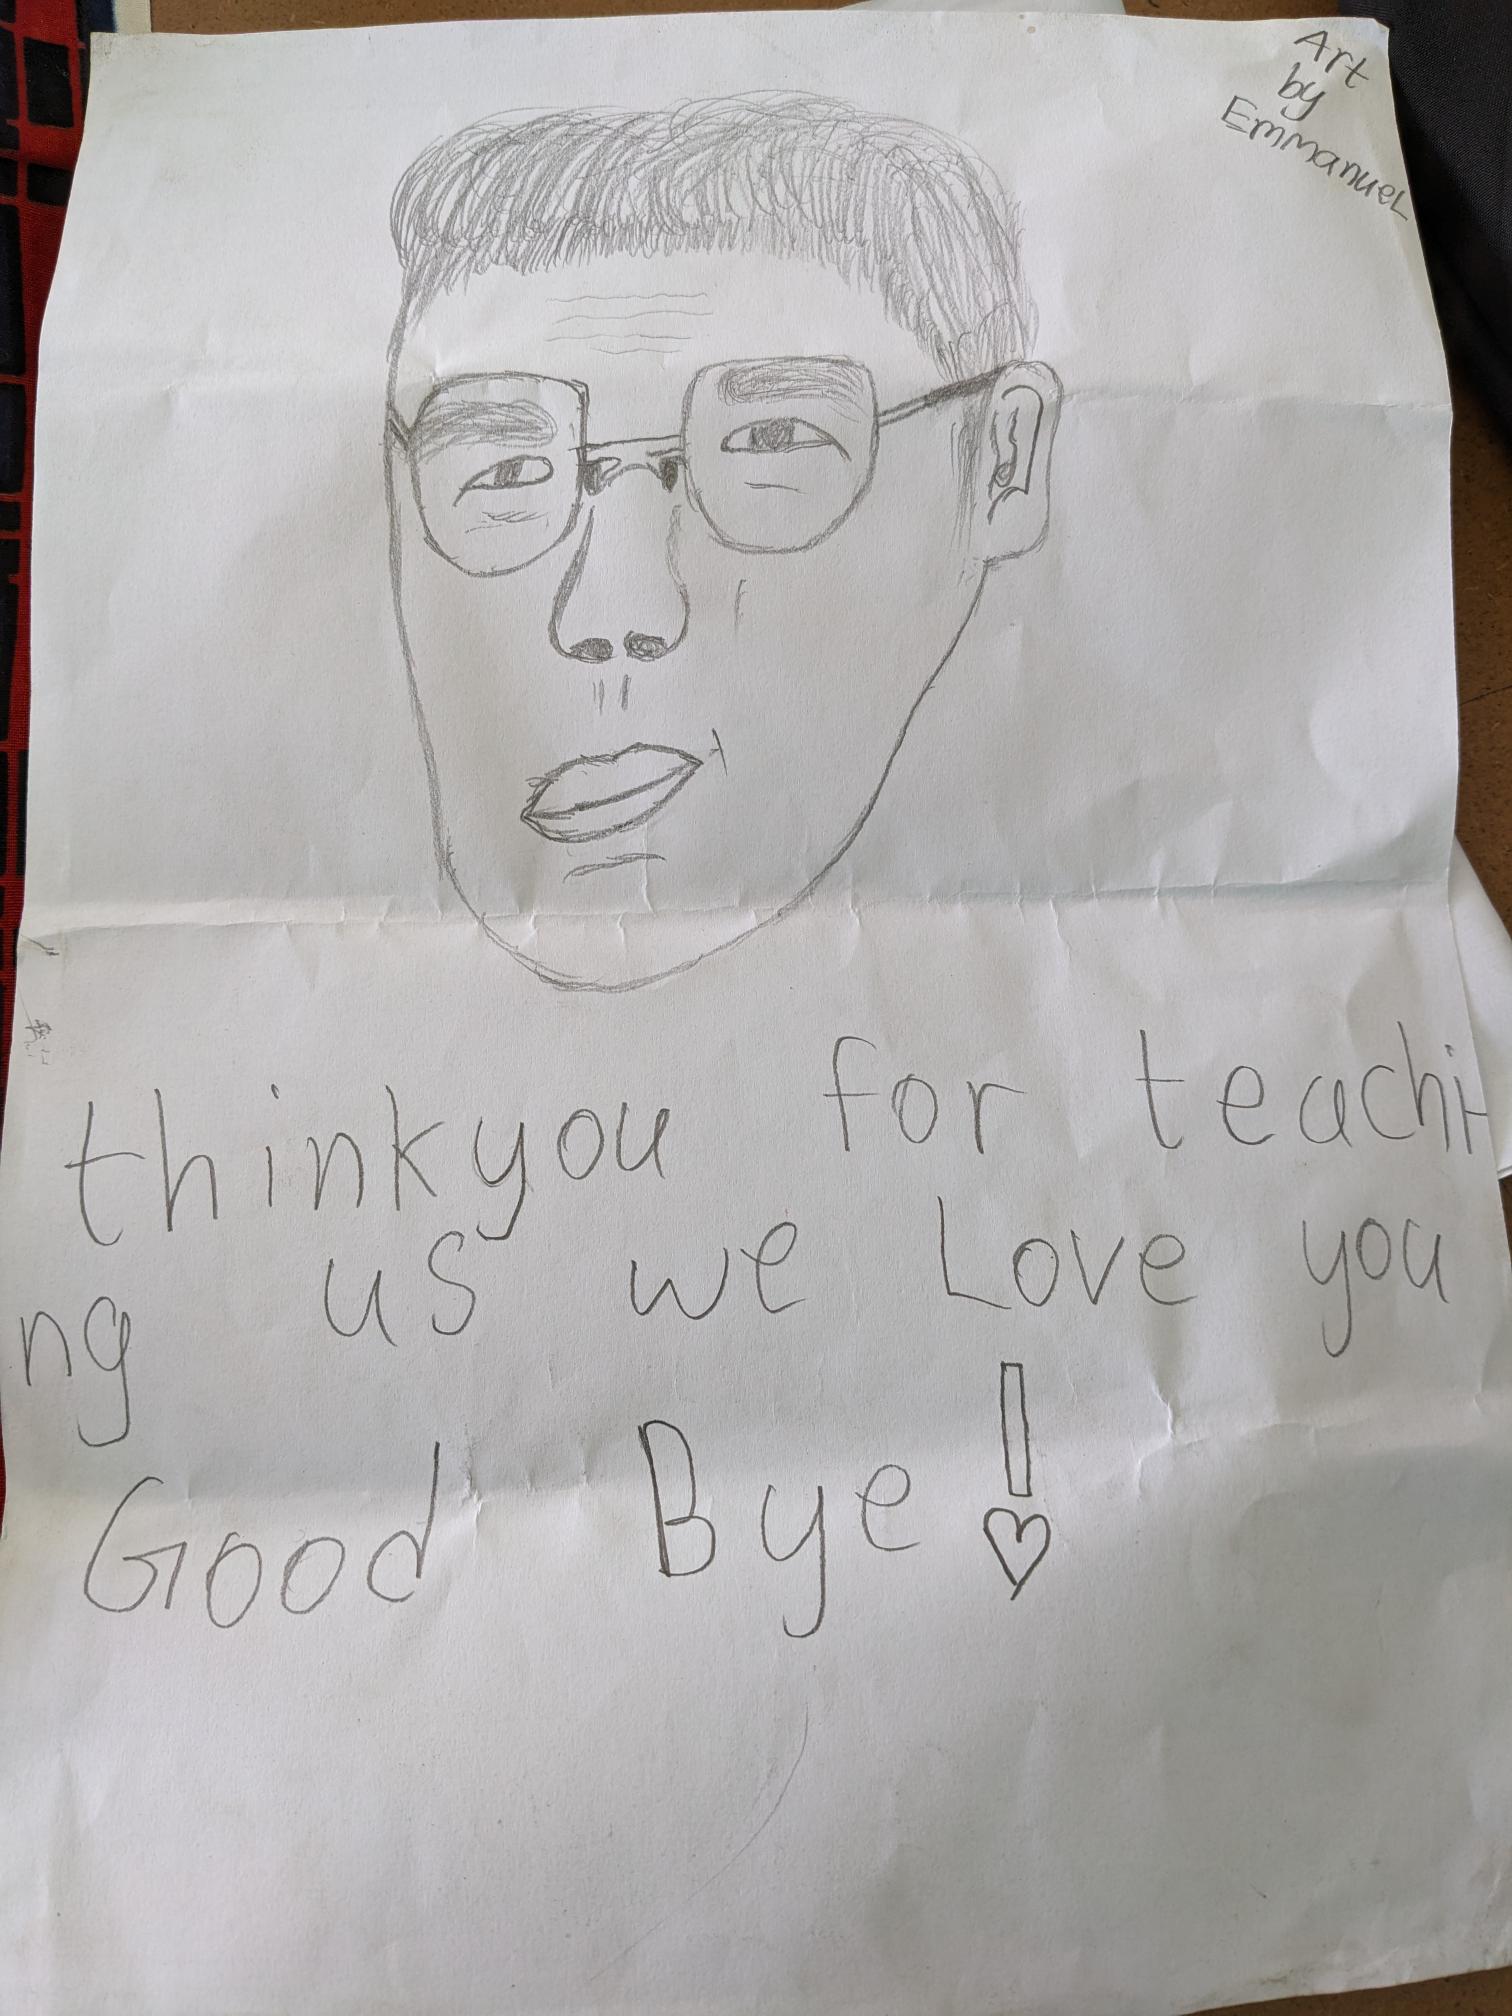 Art
by
EmmanueL
thinkyou for teachi
ng us we Love you
Good Bye!